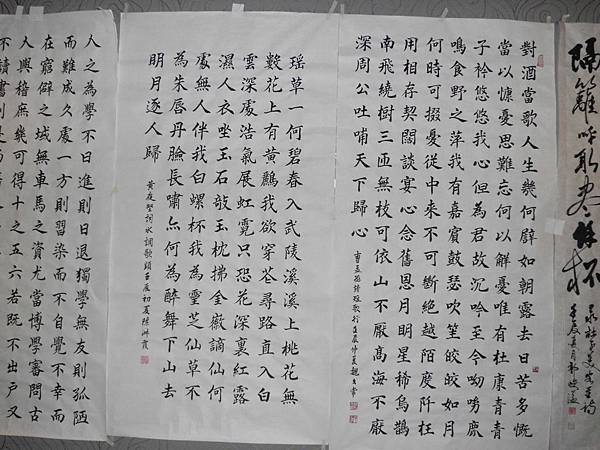 隔籬呼取盡餘杯
對酒當歌人生幾何辟如朝露去日苦多慨
當以慷憂思難忘何以解憂唯有杜康青青
子衿悠悠我心但為君故沉吟至今呦呦鹿
鳴食野之萍我有嘉賓鼓瑟吹笙皎皎如月
何時可掇憂從中來不可斷絕越陌度阡枉
用相存契闊談宴心念舊恩月明星稀烏鵲
南飛繞樹三匝無枝可依山不厭高海不厭
深周公吐哺天下歸心
曹孟德詩短歌行壬辰仲夏魏
瑤草一何碧春入武陵溪溪上桃花無
數花上有黃鸝我欲穿花尋路直入白
雲深處浩氣展虹霓只恐花深裏紅露
濕人衣坐玉石敲玉枕拂金徽謫仙何
處無人伴我白螺杯我為靈芝仙草不
為朱唇丹臉長嘯亦何為醉舞下山去
明月逐人歸
黃庭堅詞水調歌頭壬辰初夏陳淑霞
人之為學不日進則日退獨學無友則孤陋
而難成久處一方則習染而不自覺不幸而
在窮僻之域無車馬之資尤當博學審問古
人與稽庶幾可得十之五六若既不出戶又
不讀書則是